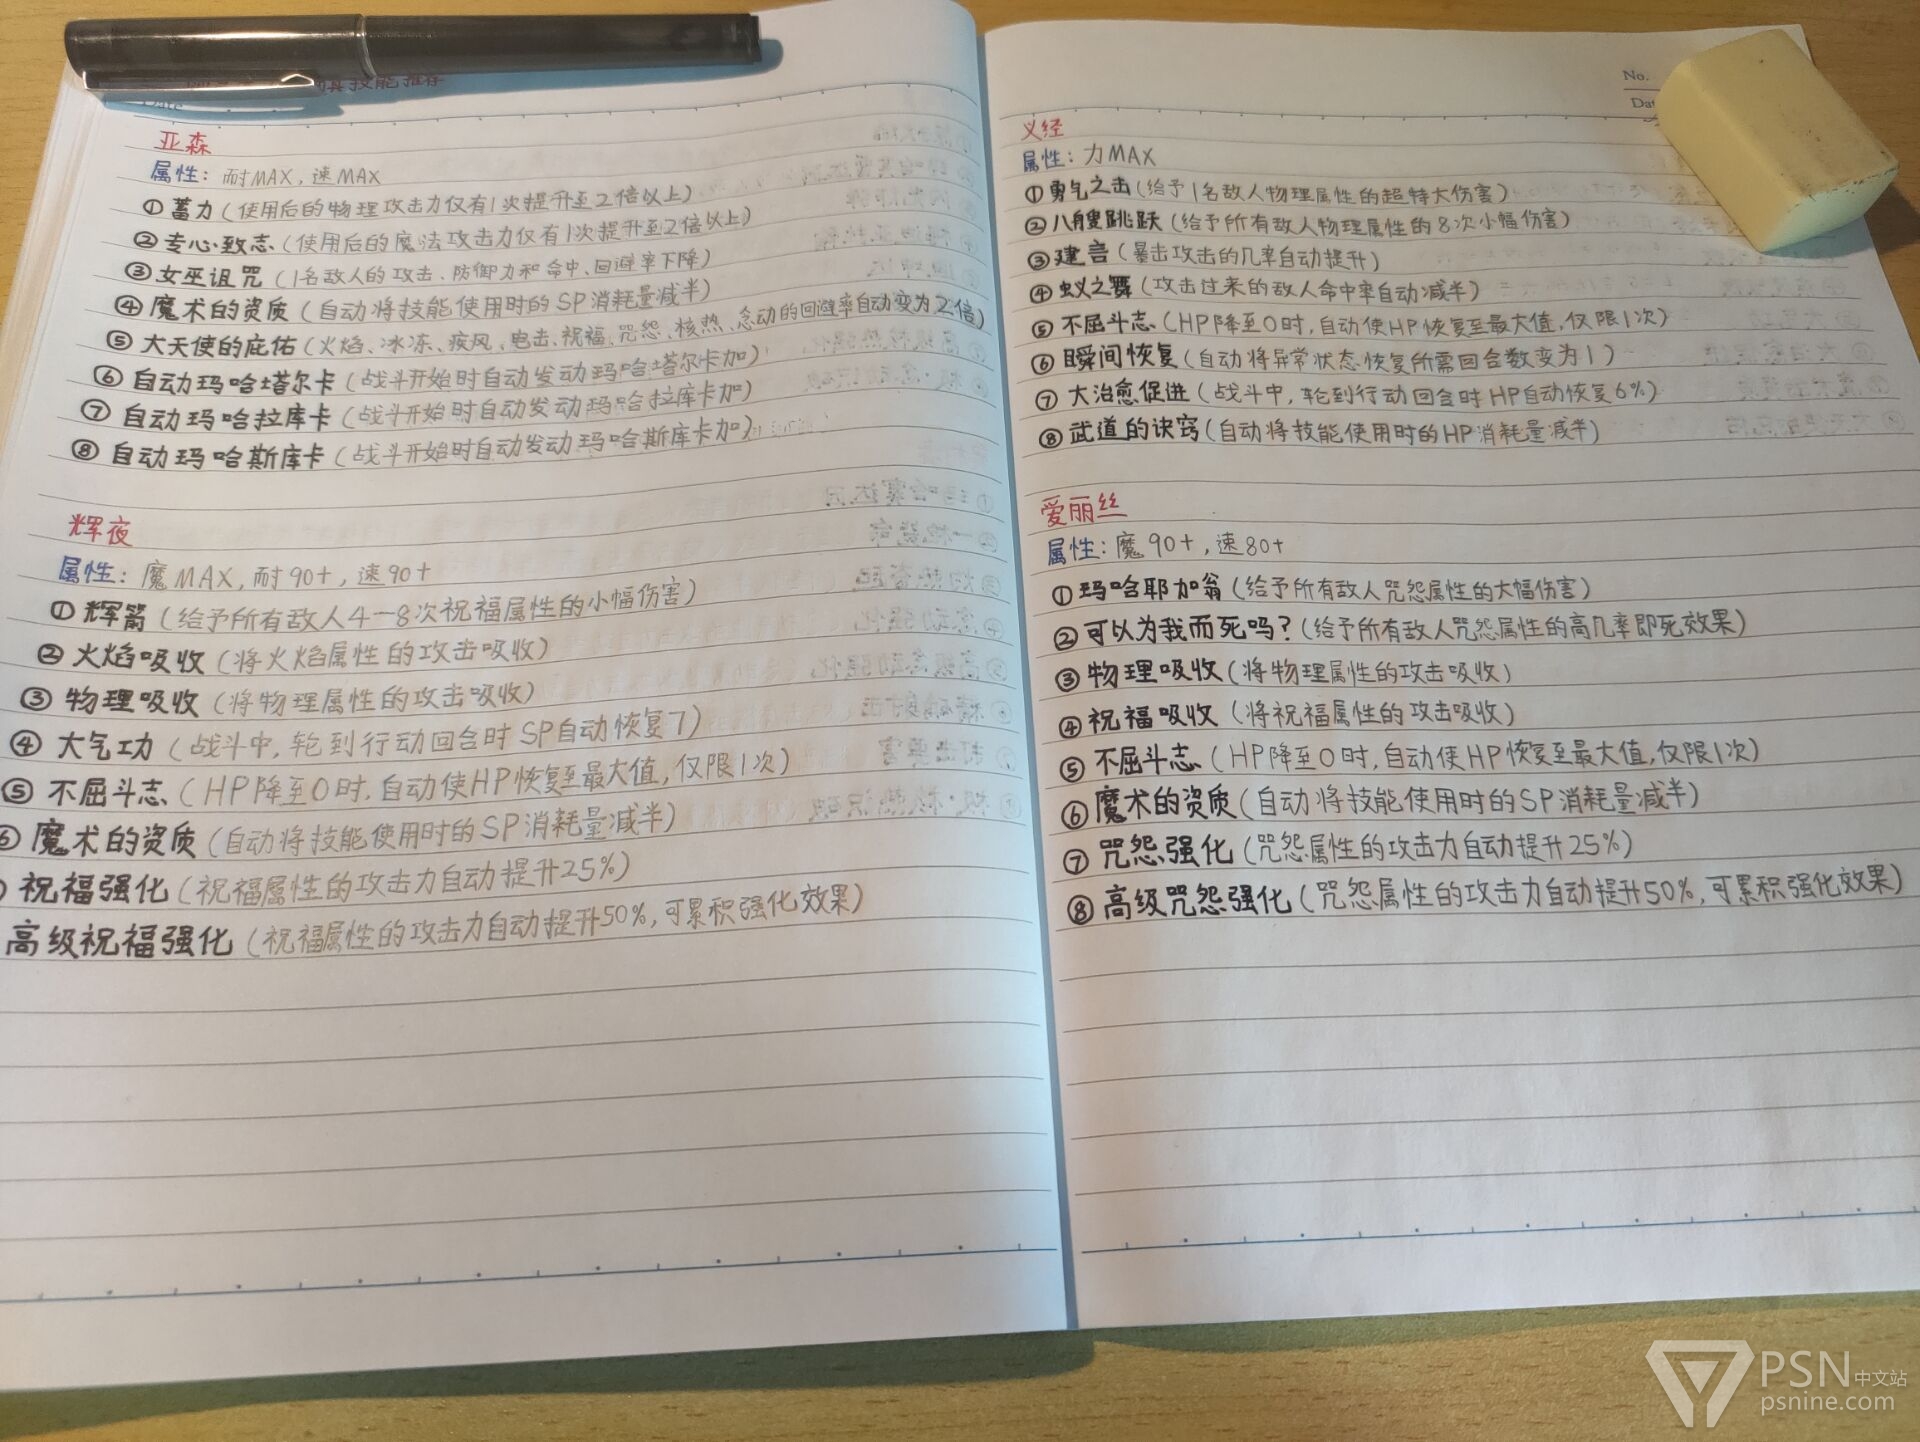 技能推荐
亚森
属性：耐MAX，速MAX
①蓄力（使用后的物理攻击力仅有1次提升至2倍以上）
②专心致志（使用后的魔法攻击力仅有1次提升至2倍以上）
③女巫诅咒（1名敌人的攻击、防御力和命中、回避率下降）
④魔术的资质（自动将技能使用时的SP消耗量减半）
⑤大天使的庇佑（火焰、冰冻、疾风、电击、祝福、咒怨、核热、念动的回避率自动变为2倍）
⑥自动玛哈塔尔卡（战斗开始时自动发动玛哈塔尔卡加）
⑦自动玛哈拉库卡（战斗开始时自动发动玛哈拉库卡加）
⑧自动玛哈斯库卡（战斗开始时自动发动玛哈斯库卡加）
辉夜
属性：魔MAX，耐90+，速90+
①辉箭（给予所有敌人4—8次祝福属性的小幅伤害）
②火焰吸收（将火焰属性的攻击吸收）
③物理吸收（将物理属性的攻击吸收）
④大气功（战斗中，轮到行动回合时SP自动恢复7）
⑤不屈斗志（HP降至0时，自动使HP恢复至最大值，仅限1次）
⑥魔术的资质（自动将技能使用时的SP消耗量减半）
祝福强化（祝福属性的攻击力自动提升25%）
高级祝福强化（祝福属性的攻击力自动提升50%，可累积强化效果）
No.
义经
属性：力MAX
①勇气之击（给予1名敌人物理属性的超特大伤害）
②八艘跳跃（给予所有敌人物理属性的8次小幅伤害）
③建言（暴击攻击的几率自动提升）
④蚁之舞（攻击过来的敌人命中率自动减半）
⑤不屈斗志（HP降至0时，自动使HP恢复至最大值，仅限1次）
⑥瞬间恢复（自动将异常状态恢复所需回合数变为1）
⑦大治愈促进（战斗中，轮到行动回合时HP自动恢复6%）
⑧武道的诀窍（自动将技能使用时的HP消耗量减半）
爱丽丝
属性：魔90+，速80+
①玛哈耶加翁（给予所有敌人咒怨属性的大幅伤害）
②可以为我而死吗？（给予所有敌人咒怨属性的高几率即死效果）
③物理吸收（将物理属性的攻击吸收）
④祝福吸收（将祝福属性的攻击吸收）
⑤不屈斗志（HP降至0时，自动使HP恢复至最大值，仅限1次）
⑥魔术的资质（自动将技能使用时的SP消耗量减半）
⑦咒怨强化（咒怨属性的攻击力自动提升25%）
⑧高级咒怨强化（咒怨属性的攻击力自动提升50%，可累积强化效果）
PSN中文站
psnine.com